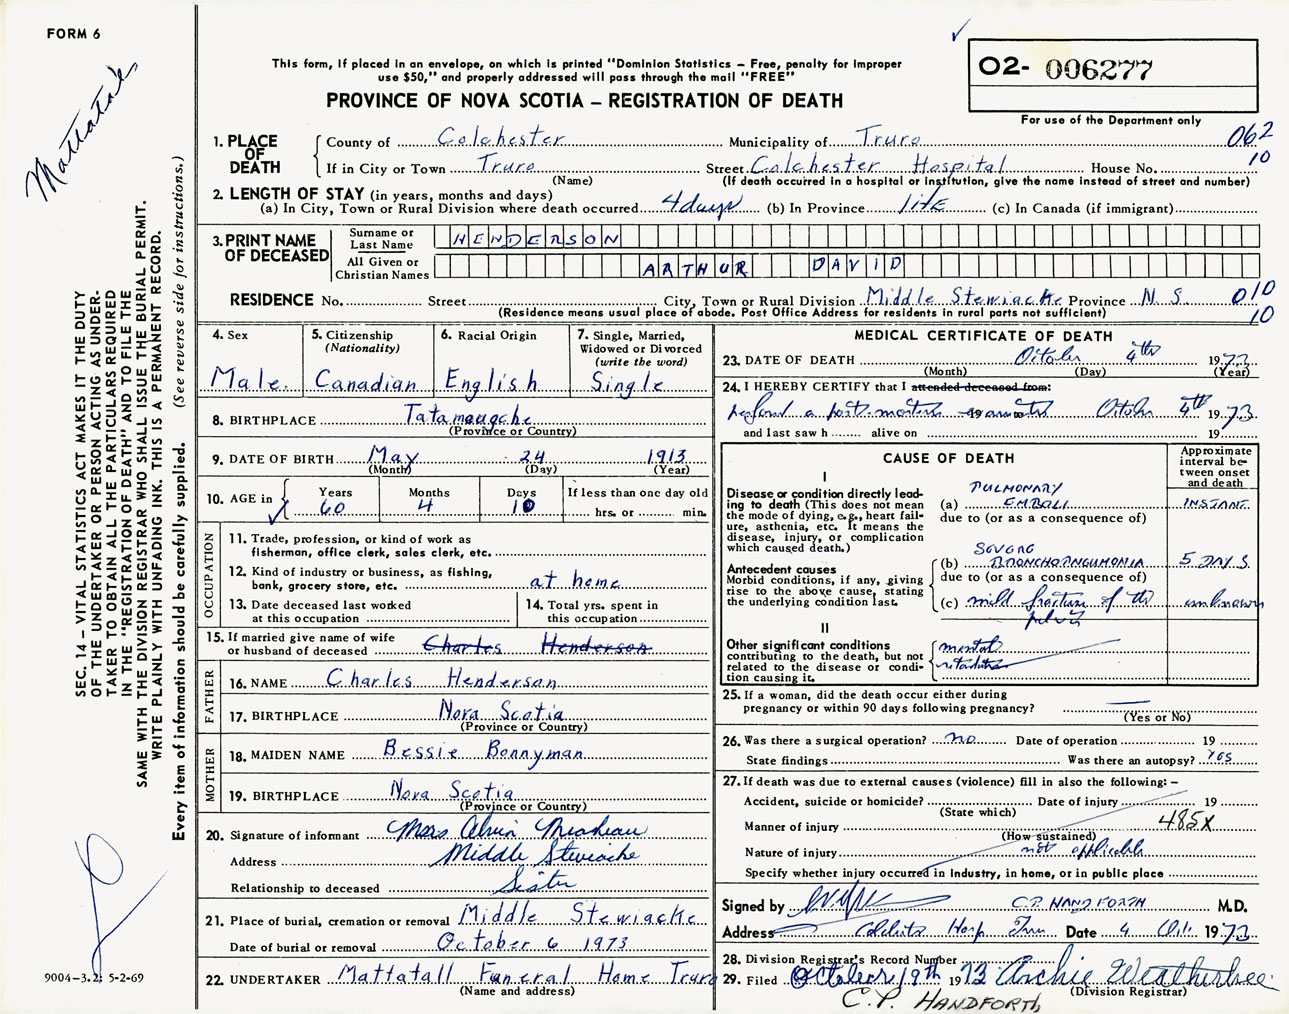 FORM 6
Mattatals
This form, if placed in an envelope, on which is printed "Dominion Statistics – Free, penalty for improper
use $50," and properly addressed will pass through the mail "FREE"
PROVINCE OF NOVA SCOTIA – REGISTRATION OF DEATH
O2- 006277
For use of the Department only
1. PLACE OF DEATH
County of Colchester Municipality of Truro 062
If in City or Town Truro Street Colchester Hospital House No. 10
(Name) (If death occurred in a hospital or institution, give the name instead of street and number)
2. LENGTH OF STAY (in years, months and days)
(a) In City, Town or Rural Division where death occurred 4 days (b) In Province life (c) In Canada (if immigrant)
3. PRINT NAME OF DECEASED
Surname or Last Name HENDERSON
All Given or Christian Names ARTHUR DAVID
RESIDENCE No. Street City, Town or Rural Division Middle Stewiacke Province N S. 010
(Residence means usual place of abode. Post Office Address for residents in rural parts not sufficient) 10
4. Sex Male
5. Citizenship (Nationality) Canadian
6. Racial Origin English
7. Single, Married, Widowed or Divorced (write the word) Single
8. BIRTHPLACE Tatamaugche
(Province or Country)
9. DATE OF BIRTH May 24 1913
(Month) (Day) (Year)
10. AGE in Years 60 Months 4 Days 10 If less than one day old hrs. or min.
OCCUPATION
11. Trade, profession, or kind of work as
fisherman, office clerk, sales clerk, etc.
12. Kind of industry or business, as fishing,
bank, grocery store, etc. at home
13. Date deceased last worked
at this occupation
14. Total yrs. spent in
this occupation
15. If married give name of wife
or husband of deceased Charles Henderson
FATHER
16. NAME Charles Henderson
17. BIRTHPLACE Nova Scotia
(Province or Country)
MOTHER
18. MAIDEN NAME Bessie Bonnyman
19. BIRTHPLACE Nova Scotia
(Province or Country)
20. Signature of informant Mrs Alvin
Address Middle Stewiacke
Relationship to deceased Sister
21. Place of burial, cremation or removal Middle Stewiacke
Date of burial or removal October 6 1973
22. UNDERTAKER Mattatall Funeral Home Truro
(Name and address)
MEDICAL CERTIFICATE OF DEATH
23. DATE OF DEATH October 4th 1973
(Month) (Day) (Year)
24. I HEREBY CERTIFY that I attended deceased from:
perform a post mortem October 4th 1973
and last saw h alive on 19
CAUSE OF DEATH
Approximate interval between onset and death
I
Disease or condition directly lead-
ing to death (This does not mean
the mode of dying, e.g., heart fail-
ure, asthenia, etc. It means the
disease, injury, or complication
which caused death.)
(a) PULMONARY EMBOLI INSTANT
due to (or as a consequence of)
Antecedent causes
Morbid conditions, if any, giving
rise to the above cause, stating
the underlying condition last.
(b) SEVERE BRONCHOPNEUMONIA 5 DAYS
due to (or as a consequence of)
(c) mild fracture of the pelvis unknown
II
Other significant conditions
contributing to the death, but not
related to the disease or condi-
tion causing it.
mental
retardation
25. If a woman, did the death occur either during
pregnancy or within 90 days following pregnancy?
(Yes or No)
26. Was there a surgical operation? no Date of operation 19
State findings Was there an autopsy? yes
27. If death was due to external causes (violence) fill in also the following: –
Accident, suicide or homicide? Date of injury 19
(State which)
Manner of injury 485X
(How sustained)
Nature of injury not applicable
Specify whether injury occurred in industry, in home, or in public place
Signed by C.P. HANDFORTH M.D.
Address Colchester Hosp Truro Date 4 Oct. 1973
28. Division Registrar's Record Number
29. Filed October 19th 1973 Archie Weatherbee
(Division Registrar)
C.P. HANDFORTH
SEC. 14 – VITAL STATISTICS ACT MAKES IT THE DUTY
OF THE UNDERTAKER OR PERSON ACTING AS UNDER-
TAKER TO OBTAIN ALL THE PARTICULARS REQUIRED
IN THE "REGISTRATION OF DEATH" AND TO FILE THE
SAME WITH THE DIVISION REGISTRAR WHO SHALL ISSUE THE BURIAL PERMIT.
WRITE PLAINLY WITH UNFADING INK. THIS IS A PERMANENT RECORD.
Every item of information should be carefully supplied. (See reverse side for instructions.)
9004-3.2: 5-2-69